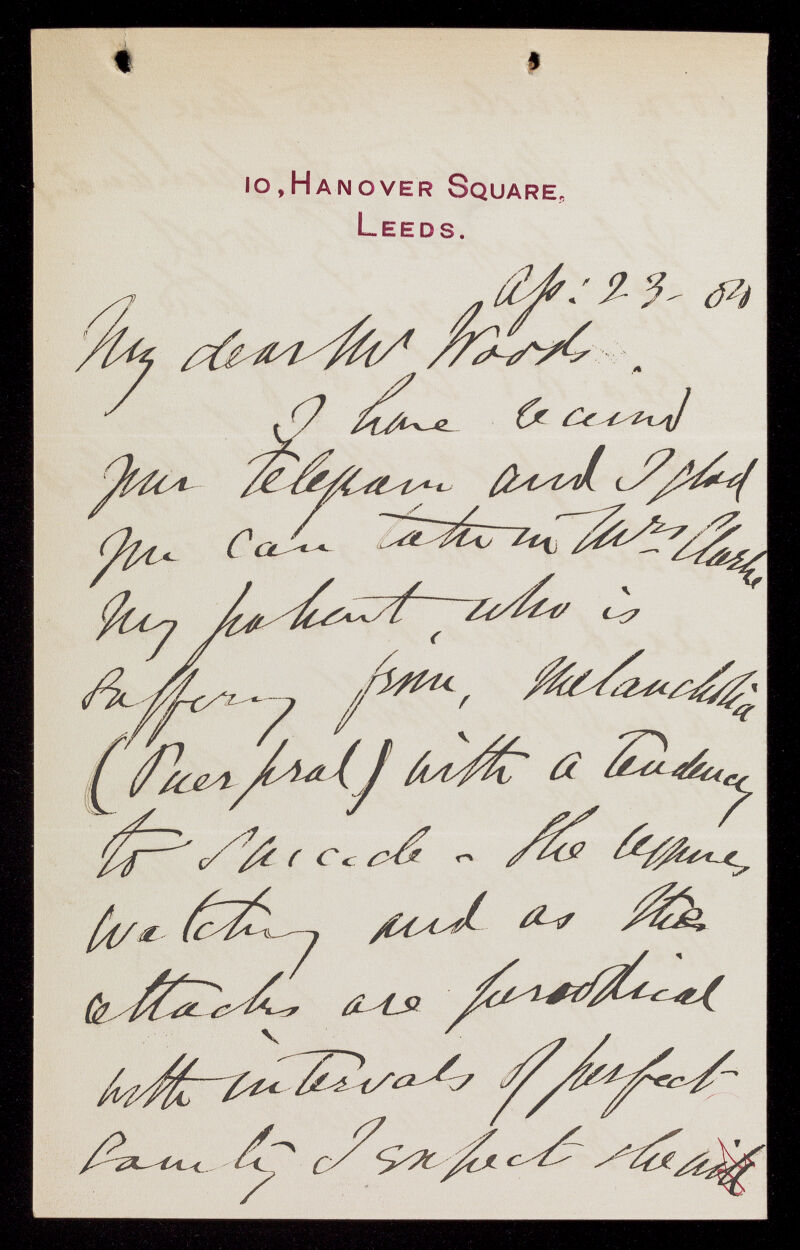 10, HANOVER SQUARE,
LEEDS.
Ap: 23 - 84
My dear Mr Woods.
I have received
your telegram and I glad
you can take in Mrs Clarke
My patient, who is
suffering from, Melancholia
(Puerperal) with a tendency
to suicide - She requires
watching and as the
attacks are periodical
with intervals of perfect
sanity I expect she will